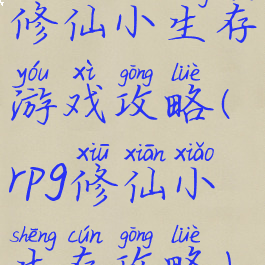 修仙小生存
yóu xì gōng lüè
游戏攻略(
xiū xiān xiǎo
rpg修仙小
shēng cún gōng lüè
生存攻略)